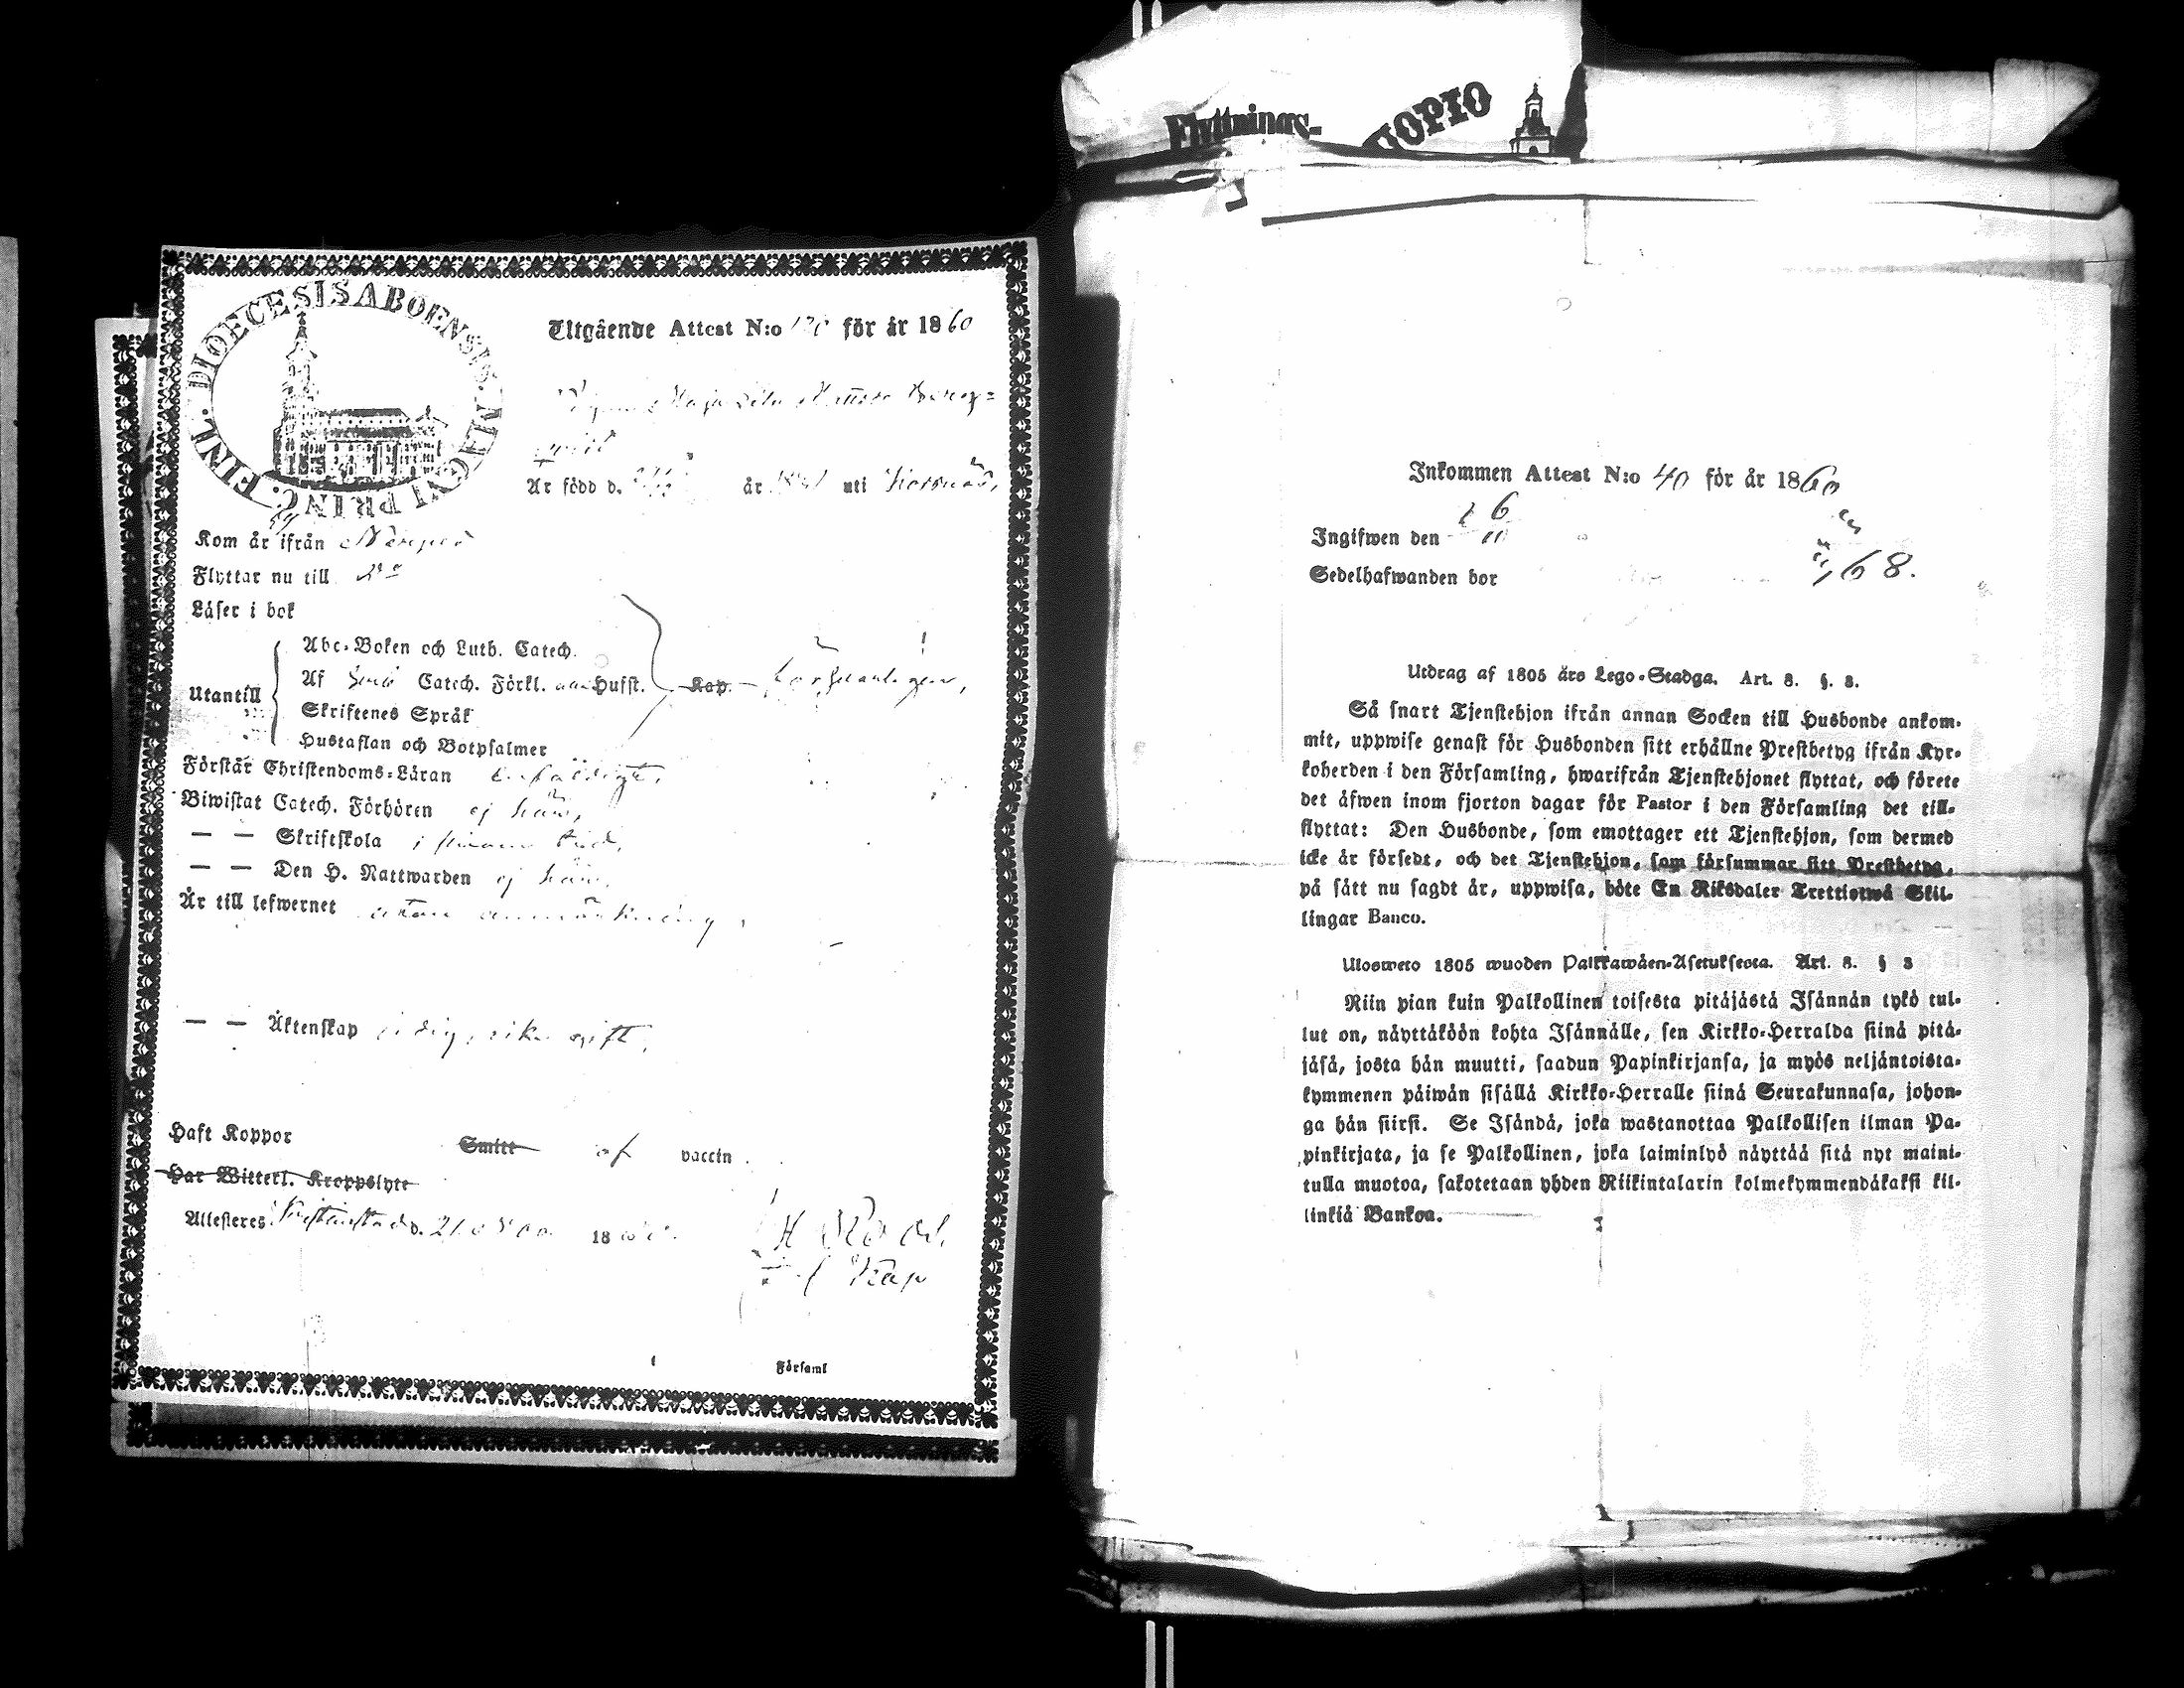 DIOECESIS ABOENSIS. MAGNI PRINC. FINL.
Utgående Attest N:o för år 1860
Är född d. år uti Korsnäs,
Kom år ifrån Nerpes
Flyttar nu till
Läser i bok
Abc-Boken och Luth. Catech.
Utantill
Af Catech. Förkl. Hufst. Kap. försvarligen,
Skriftenes Språk
Hustaflan och Botpsalmer
Förstår Christendoms-Läran enfaldigt,
Biwistat Catech. Förhören ej här,
— — Skriftskola i sinom tid,
— — Den H. Nattwarden ej här,
Är till lefwernet utan anmärkning,
— — Äktenskap ledig, icke gift,
Haft Koppor Smitt af vaccin
Har Witterl. Kroppslyte
Attesteres Kristinestad d. 18
Församl
Flyttnings-
UOPIO
Inkommen Attest N:o 40 för år 1860
Ingifwen den 6/11
Sedelhafwanden bor
168.
Utdrag af 1805 års Lego-Stadga. Art. 8. §. 8.
Så snart Tjenstehjon ifrån annan Socken till Husbonde ankom-
mit, uppwise genast för Husbonden sitt erhållne Prestbetyg ifrån Kyr-
koherden i den Församling, hwarifrån Tjenstehjonet flyttat, och förete
det äfwen inom fjorton dagar för Pastor i den Församling det till-
flyttat: Den Husbonde, som emottager ett Tjenstehjon, som dermed
icke är försedt, och det Tjenstehjon, som försummar sitt Prestbetyg,
på sätt nu sagdt är, uppwisa, böte En Riksdaler Trettiotwå Skil-
lingar Banco.
Ulosweto 1805 wuoden Palkkawäen-Asetuksesta. Art. 8. § 8
Niin pian kuin Palkollinen toisesta pitäjästä Isännän tykö tul-
lut on, näyttäköön kohta Isännälle, sen Kirkko-Herralda siinä pitä-
jäsä, josta hän muutti, saadun Papinkirjansa, ja myös neljäntoista-
kymmenen päiwän sisällä Kirkko-Herralle siinä Seurakunnasa, johon-
ga hän siirsi. Se Isändä, joka wastanottaa Palkollisen ilman Pa-
pinkirjata, ja se Palkollinen, joka laiminlyö näyttää sitä nyt maini-
tulla muotoa, sakotetaan yhden Riikintalarin kolmekymmendäkaksi kil-
linkiä Bankoa.